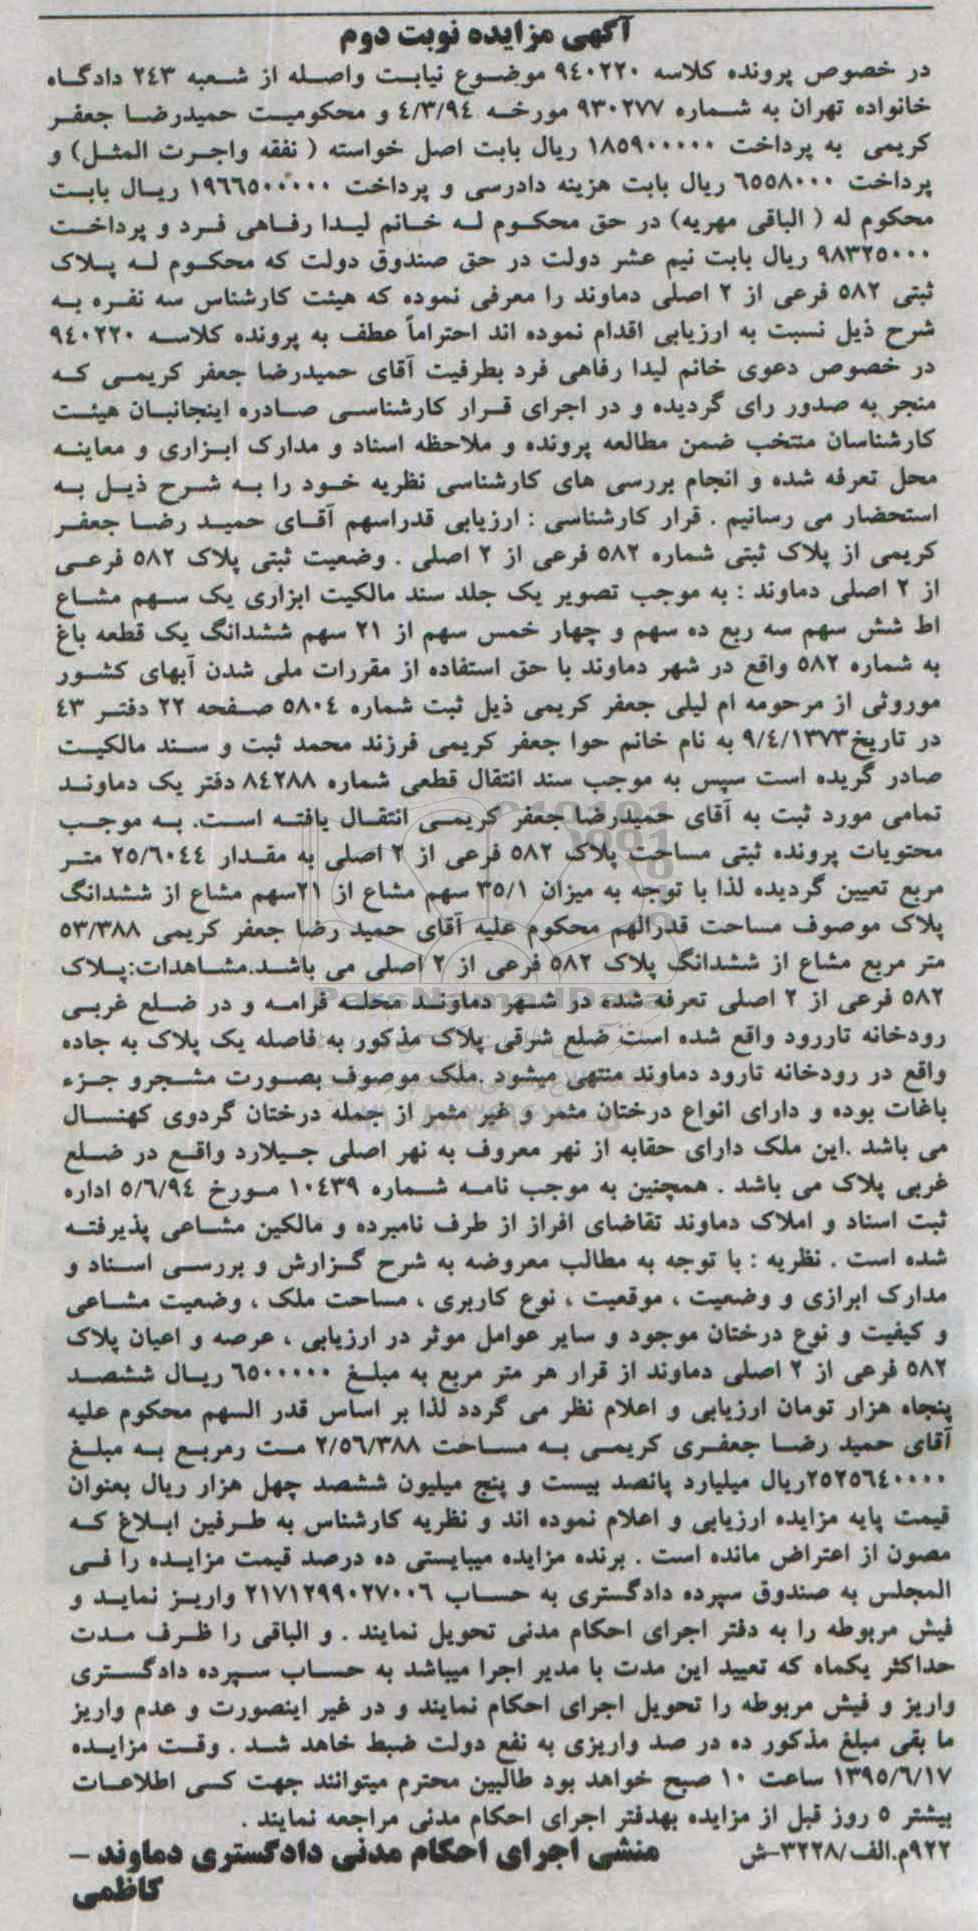 آگهی مزایده نوبت دوم
در خصوص پرونده کلاسه ۹٤۰۲۲۰ موضوع نیابت واصله از شعبه ۲٤۳ دادگاه
خانواده تهران به شماره ۹۳۰۲۷۷ مورخه ٤/۳/۹٤ و محکومیت حمیدرضا جعفر
کریمی به پرداخت ۱۸۵۹۰۰۰۰۰ ریال بابت اصل خواسته ( نفقه واجرت المثل) و
پرداخت ٦۵۵۸۰۰۰ ریال بابت هزینه دادرسی و پرداخت ۱۹٦٦۵۰۰۰۰۰ ریال بابت
محکوم له ( الباقی مهریه) در حق محکوم له خانم لیدا رفاهی فرد و پرداخت
۹۸۳۲۵۰۰۰ ریال بابت نیم عشر دولت در حق صندوق دولت که محکوم له پلاک
ثبتی ۵۸۲ فرعی از ۲ اصلی دماوند را معرفی نموده که هیئت کارشناس سه نفره به
شرح ذیل نسبت به ارزیابی اقدام نموده اند احتراماً عطف به پرونده کلاسه ۹٤۰۲۲۰
در خصوص دعوی خانم لیدا رفاهی فرد بطرفیت آقای حمیدرضا جعفر کریمی که
منجر به صدور رای گردیده و در اجرای قرار کارشناسی صادره اینجانبان هیئت
کارشناسان منتخب ضمن مطالعه پرونده و ملاحظه اسناد و مدارک ابزاری و معاینه
محل تعرفه شده و انجام بررسی های کارشناسی نظریه خود را به شرح ذیل به
استحضار می رسانیم . قرار کارشناسی : ارزیابی قدراسهم آقای حمید رضا جعفر
کریمی از پلاک ثبتی شماره ۵۸۲ فرعی از ۲ اصلی . وضعیت ثبتی پلاک ۵۸۲ فرعی
از ۲ اصلی دماوند : به موجب تصویر یک جلد سند مالکیت ابزاری یک سهم مشاع
اط شش سهم سه ربع ده سهم و چهار خمس سهم از ۲۱ سهم ششدانگ یک قطعه باغ
به شماره ۵۸۲ واقع در شهر دماوند با حق استفاده از مقررات ملی شدن آبهای کشور
موروثی از مرحومه ام لیلی جعفر کریمی ذیل ثبت شماره ۵۸۰٤ صفحه ۲۲ دفتر ٤۳
در تاریخ۹/٤/۱۳۷۳ به نام خانم حوا جعفر کریمی فرزند محمد ثبت و سند مالکیت
صادر گریده است سپس به موجب سند انتقال قطعی شماره ۸٤۲۸۸ دفتر یک دماوند
تمامی مورد ثبت به آقای حمیدرضا جعفر کریمی انتقال یافته است. به موجب
محتویات پرونده ثبتی مساحت پلاک ۵۸۲ فرعی از ۲ اصلی به مقدار ۲۵/٦۰٤٤ متر
مربع تعیین گردیده لذا با توجه به میزان ۳۵/۱ سهم مشاع از ۲۱سهم مشاع از ششدانگ
پلاک موصوف مساحت قدرالهم محکوم علیه آقای حمید رضا جعفر کریمی ۵۳/۳۸۸
متر مربع مشاع از ششدانگ پلاک ۵۸۲ فرعی از ۲ اصلی می باشد.مشاهدات:پلاک
۵۸۲ فرعی از ۲ اصلی تعرفه شده در شهر دماوند محله فرامه و در ضلع غربی
رودخانه تاررود واقع شده است ضلع شرقی پلاک مذکور به فاصله یک پلاک به جاده
واقع در رودخانه تارود دماوند منتهی میشود .ملک موصوف بصورت مشجرو جزء
باغات بوده و دارای انواع درختان مثمر و غیر مثمر از جمله درختان گردوی کهنسال
می باشد .این ملک دارای حقابه از نهر معروف به نهر اصلی جیلارد واقع در ضلع
غربی پلاک می باشد . همچنین به موجب نامه شماره ۱۰٤۳۹ مورخ ۵/٦/۹٤ اداره
ثبت اسناد و املاک دماوند تقاضای افراز از طرف نامبرده و مالکین مشاعی پذیرفته
شده است . نظریه : با توجه به مطالب معروضه به شرح گزارش و بررسی اسناد و
مدارک ابرازی و وضعیت ، موقعیت ، نوع کاربری ، مساحت ملک ، وضعیت مشاعی
و کیفیت و نوع درختان موجود و سایر عوامل موثر در ارزیابی ، عرصه و اعیان پلاک
۵۸۲ فرعی از ۲ اصلی دماوند از قرار هر متر مربع به مبلغ ٦۵۰۰۰۰۰ ریال ششصد
پنجاه هزار تومان ارزیابی و اعلام نظر می گردد لذا بر اساس قدر السهم محکوم علیه
آقای حمید رضا جعفری کریمی به مساحت ۲/۵٦/۳۸۸ مت رمربع به مبلغ
۲۵۲۵٦٤۰۰۰۰ریال میلیارد پانصد بیست و پنج میلیون ششصد چهل هزار ریال بعنوان
قیمت پایه مزایده ارزیابی و اعلام نموده اند و نظریه کارشناس به طرفین ابلاغ که
مصون از اعتراض مانده است . برنده مزایده میبایستی ده درصد قیمت مزایده را فی
المجلس به صندوق سپرده دادگستری به حساب ۲۱۷۱۲۹۹۰۲۷۰۰٦ واریز نماید و
فیش مربوطه را به دفتر اجرای احکام مدنی تحویل نمایند . و الباقی را ظرف مدت
حداکثر یکماه که تعیید این مدت با مدیر اجرا میباشد به حساب سپرده دادگستری
واریز و فیش مربوطه را تحویل اجرای احکام نمایند و در غیر اینصورت و عدم واریز
ما بقی مبلغ مذکور ده در صد واریزی به نفع دولت ضبط خاهد شد . وقت مزایده
۱۳۹۵/٦/۱۷ ساعت ۱۰ صبح خواهد بود طالبین محترم میتوانند جهت کسی اطلاعات
بیشتر ۵ روز قبل از مزایده بهدفتر اجرای احکام مدنی مراجعه نمایند .
۹۲۲م.الف/۳۲۲۸-ش منشی اجرای احکام مدنی دادگستری دماوند –
کاظمی